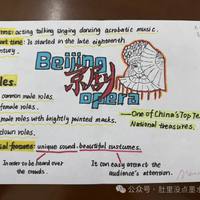 ms: acting talking singing dancing acrobatic music.
rt time: It started in the late eighteenth
entury.
Beijing
京剧
opera
les.
common male roles.
female roles.
male roles with brightly painted masks.
clown roles.
One of China's Top Te
National treasures.
ial features: unique sound. beautiful costumes.
In order to be heard over
the crowds.
It can easily attract the
audience's attention.
公众号·肚里没点墨水